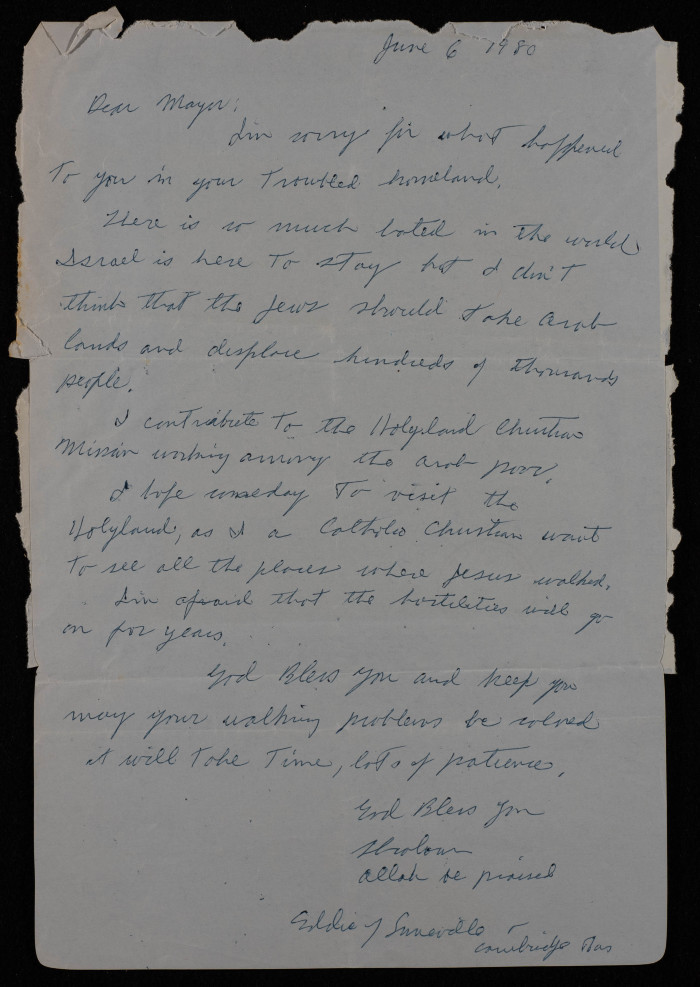 June 6 1980
Dear Mayor:
I'm sorry for what happened
to you in your troubled homeland.
There is so much hated in the world
Israel is here to stay but I don't
think that the Jews should take Arab
lands and displace hundreds of thousands
people.
I contribute to the Holyland Christian
Mission working among the arab poor.
I hope someday to visit the
Holyland, as I a Catholic Christian want
to see all the places where Jesus walked.
I'm afraid that the hostilities will go
on for years.
God Bless You and keep you
may your walking problems be solved
it will take time, lots of patience.
God Bless You
Shalom
Allah be praised
Eddie
Cambridge Mas